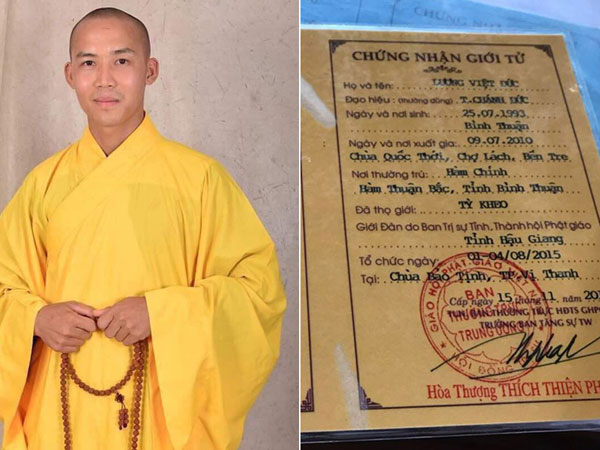 CHỨNG NHẬN GIỚI TỬ
Họ và tên: LƯƠNG VIỆT ĐỨC
Đạo hiệu: (thường dùng) T.CHÁNH ĐỨC
Ngày và nơi sinh: 25.07.1993
Bình Thuận
Ngày và nơi xuất gia: 09.07.2010
Chùa Quốc Thới, Chợ Lách, Bến Tre
Nơi thường trú: Hàm Chính
Hàm Thuận Bắc, Tỉnh Bình Thuận
Đã thọ giới: TỲ KHEO
Giới Đàn do Ban Trị sự Tỉnh, Thành hội Phật giáo
Tỉnh Hậu Giang
Tổ chức ngày: 01-04/08/2015
Tại: Chùa Bảo Tịnh, TP.Vị Thanh
Cấp ngày 15 tháng 11 năm
TUN. BAN THƯỜNG TRỰC HĐTS GHPG
TRƯỞNG BAN TĂNG SỰ TW
GIÁO HỘI PHẬT GIÁO VIỆT
BAN
TRUNG ƯƠNG
HỘI ĐỒNG
Hòa Thượng THÍCH THIỆN PH